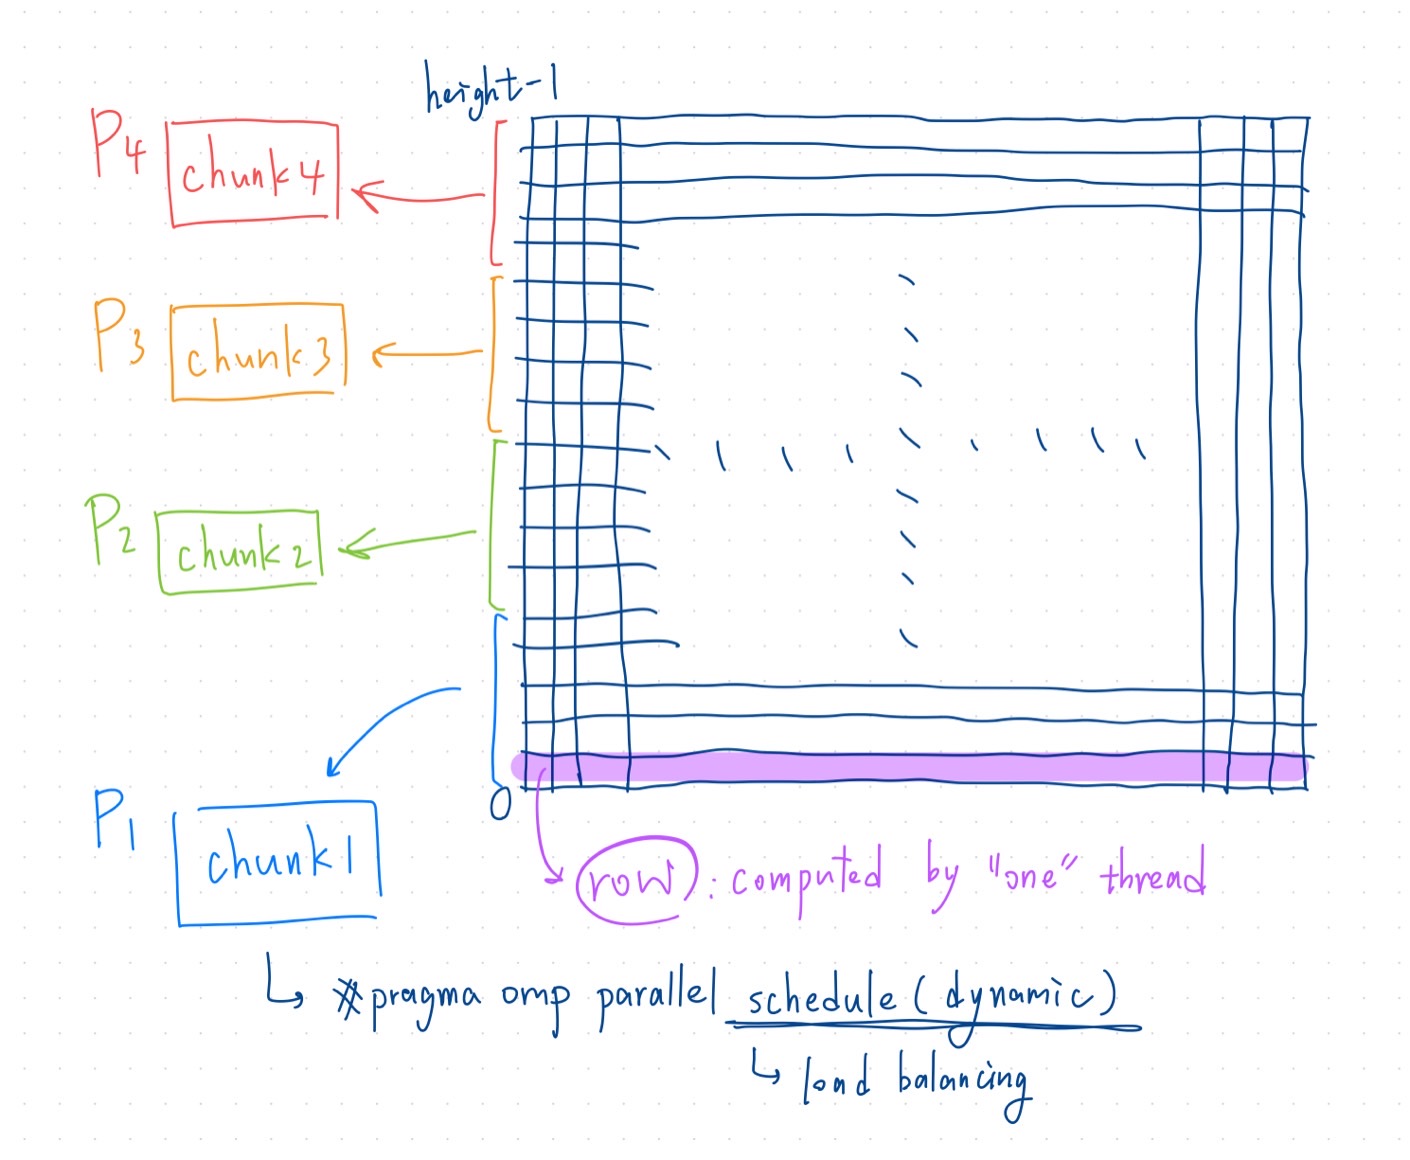 height-1
P4 chunk4
P3 chunk3
P2 chunk2
0
P1 chunk1
row : computed by "one" thread
#pragma omp parallel schedule(dynamic)
load balancing